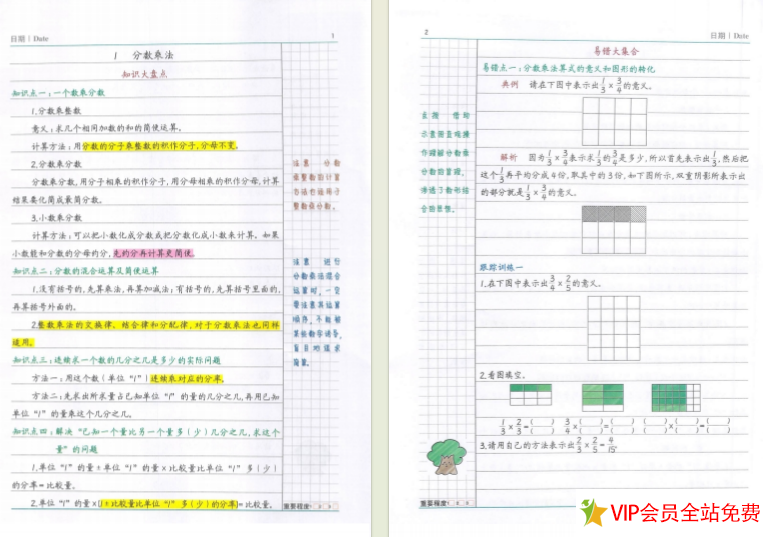 日期 | Date 1
1 分数乘法
知识大盘点
知识点一：一个数乘分数
1.分数乘整数
意义：求几个相同加数的和的简便运算。
计算方法：用分数的分子乘整数的积作分子，分母不变。
2.分数乘分数
分数乘分数，用分子相乘的积作分子，用分母相乘的积作分母，计算
结果要化简成最简分数。
3.小数乘分数
计算方法：可以把小数化成分数或把分数化成小数来计算。如果
小数能和分数的分母约分，先约分再计算更简便。
知识点二：分数的混合运算及简便运算
1.没有括号的，先算乘法，再算加减法；有括号的，先算括号里面的，
再算括号外面的。
2.整数乘法的交换律、结合律和分配律，对于分数乘法也同样
适用。
知识点三：连续求一个数的几分之几是多少的实际问题
方法一：用这个数（单位“1”）连续乘对应的分率。
方法二：先求出所求量占已知单位“1”的量的几分之几，再用已知
单位“1”的量乘这个几分之几。
知识点四：解决“已知一个量比另一个量多（少）几分之几，求这个
量”的问题
1.单位“1”的量±单位“1”的量×比较量比单位“1”多（少）
的分率=比较量。
2.单位“1”的量×(1±比较量比单位“1”多（少）的分率)=比较量。
注意 分数
乘整数的计算
整数乘分数。
注意 进行
分数乘法混合
运算时，一定
要注意其运算
顺序，不能被
某些数字诱导，
盲目的追求
简算。
重要程度
2 日期 | Date
易错大集合
易错点一：分数乘法算式的意义和图形的转化
典例 请在下图中表示出1/3×3/4的意义。
解析 因为1/3×3/4表示求1/3的3/4是多少，所以首先表示出1/3，然后把
这个1/3再平均分成4份，取其中的3份，如下图所示，双重阴影所表示出
的部分就是1/3×3/4的意义。
跟踪训练一
1.在下图中表示出3/4×2/5的意义。
2.看图填空。
1/3×2/3=( )/( ) 3/4×( )/( )=( )/( ) ( )/( )×( )/( )=( )/( )
3.请用自己的方法表示出2/3×2/5=4/15。
重要程度
VIP会员全站免费